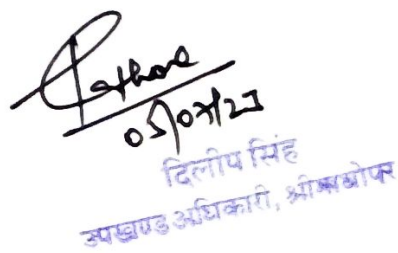 05/07/23
दिलीप सिंह
उपखण्ड अधिकारी, श्रीमाधोपुर